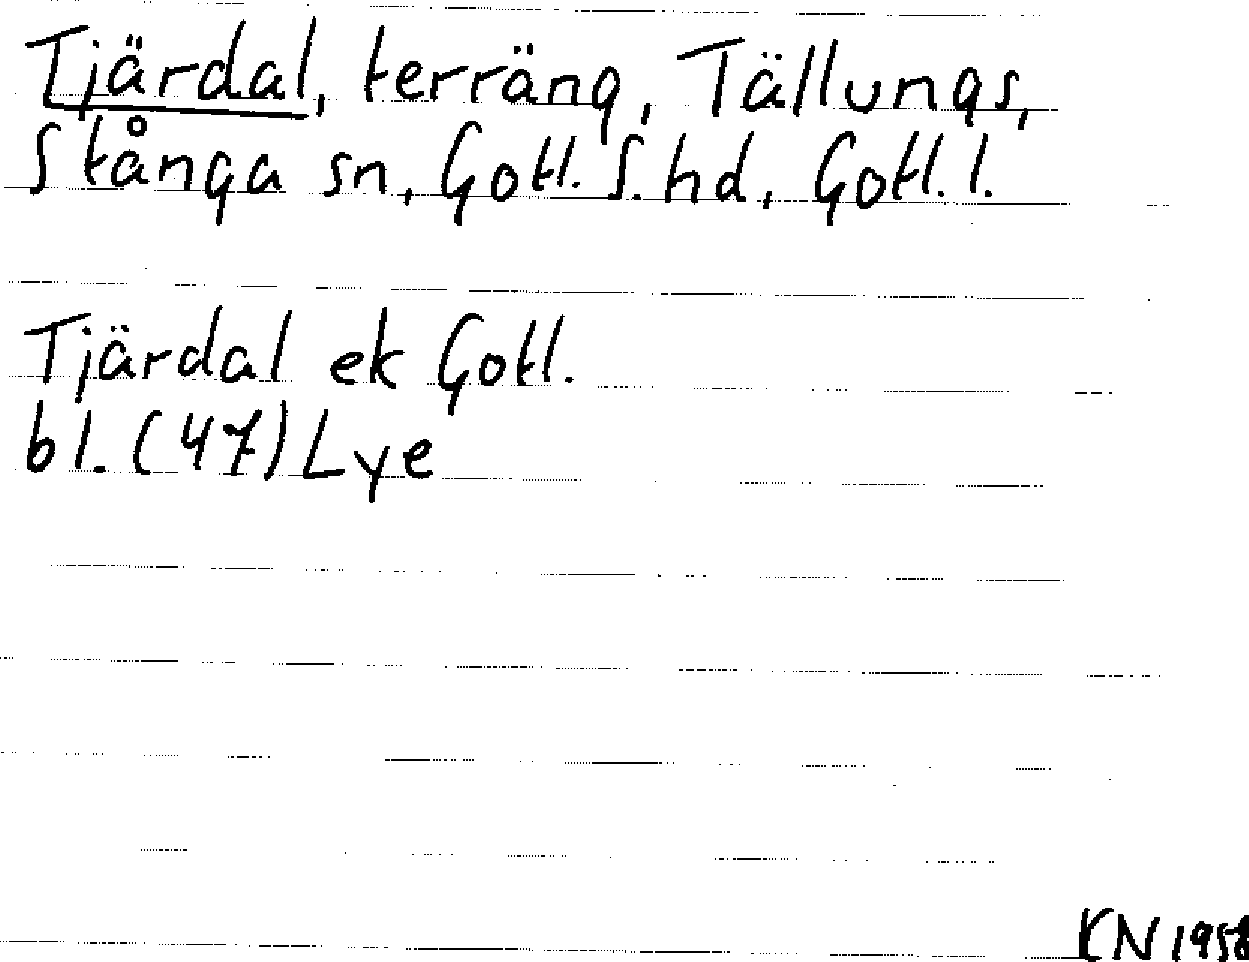 Tjärdal, terräng, Tällungs,
Stånga sn, Gotl. S. hd, Gotl. l.
Tjärdal ek Gotl.
bl. (47) Lye
KN 1958